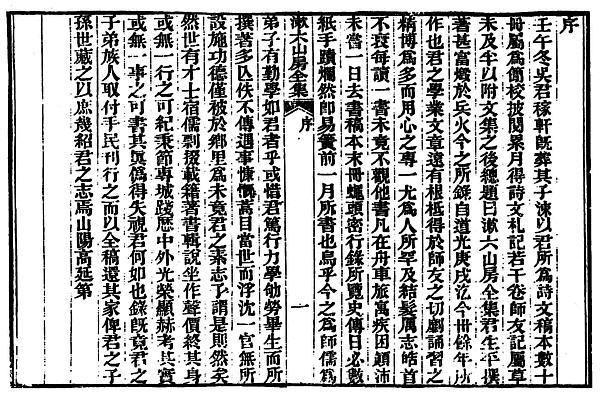 序
壬午冬吳君稼軒旣葬其子涑以君所爲詩文稿本數十
冊屬爲節校披閱累月得詩文札記若干卷師友記屬草
未及半以附文集之後總題曰漱六山房全集君生平撰
著甚富燬於兵火今之所錄自道光庚戌迄今卅餘年所
作也君之學業文章遠有根柢得於師友之切劘誦習之
精博爲多而用心之專一尤爲人所罕及結髮厲志皓首
不衰每讀一書未竟不觀他書凡在舟車旅寓疾困顛沛
未嘗一日去書稿本末冊蠅頭密行錄所覽史傳日必數
紙手蹟爛然即易簀前一月所書也烏乎今之爲師儒爲
漱六山房全集 序 一
弟子有勤學如君者乎或惜君篤行力學劬勞畢生而所
撰著多亾佚不傳遇事慷慨蒿目當世而浮沈一官無所
設施功德僅被於鄉里爲未竟君之素志了謂是則然矣
然世有才士宿儒剽掇載籍著書輯說坐作聲價終其身
或無一行之可紀秉節專城踐歷中外光榮顯赫考其實
或無一事之可書其眞爲得失視君何如也錄旣竟君之
子弟族人取付手民刊行之而以全稿還其家俾君之子
孫世藏之以庶幾紹君之志焉山陽高延第